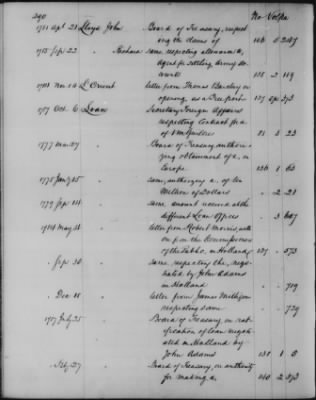 290
No Vol Pa
1781 Apl 21 Lloyd John Board of Treasury, respect
ing the claims of 136 5 247
1785 Sep 22 Richard same, respecting allowance to,
Agent for settling Army Ac
counts 138 2 119
1784 Nov 14 L'Orient letter from Thomas Barclay on
opening, as a Free port 137 373
1787 Oct 6 Loan Secretary Foreign Affairs
respecting Contract for a
of 1 M Guilders 81 3 23
1777 Board of Treasury, authori
zing obtainment of a, in
Europe 136 1 63
1778 same, authorizing a, of ten
Million of Dollars " 2 21
1779 Sep 14 same, amount received at the
different Loan Offices " 3 647
1784 May letter from Robert Morris, with
one from the Commissioners
of the Public, in Holland 137 573
" Sep 30 same, respecting the, nego
tiated by John Adams
in Holland 719
" Dec 11 letter from James Milligan
respecting same 729
1787 July 25 Board of Treasury, on rat
ification of loan negoti
ated in Holland by
John Adams 138 1 5
" 27 Board of Treasury, on authority
for making a 140 2 373